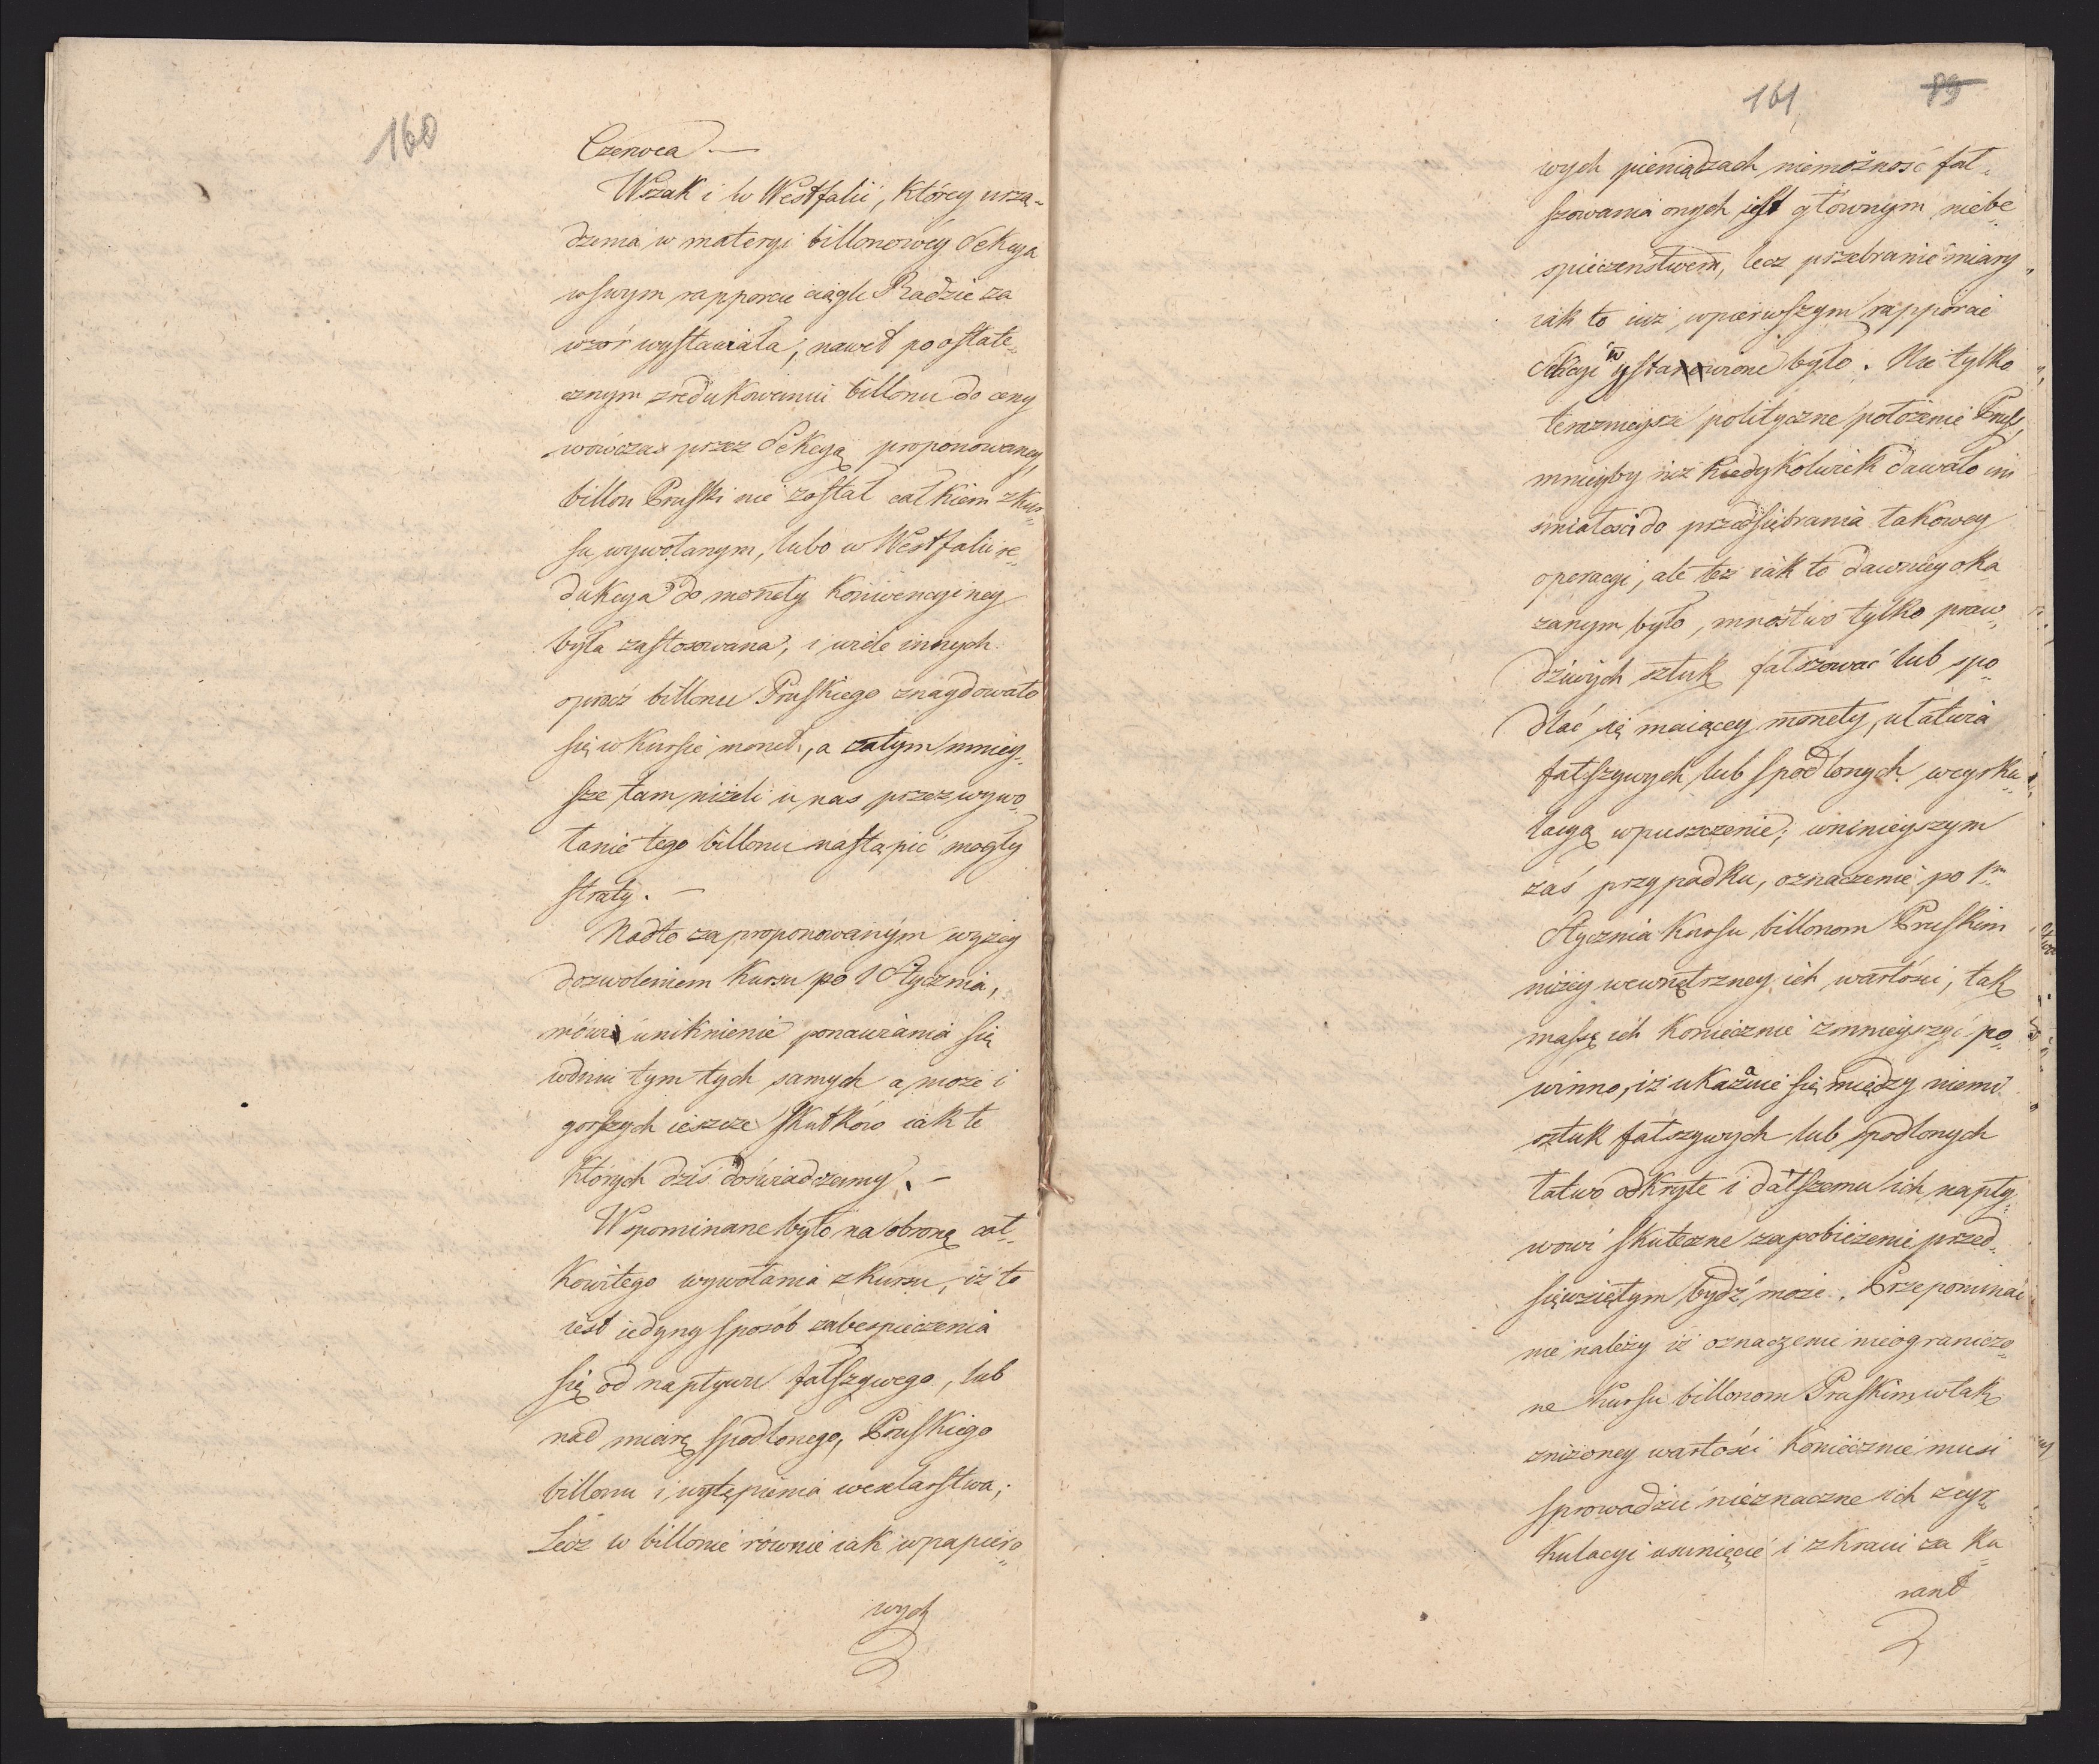 160
Czerwca —
Wszak i w Westfalii, którey urzą„
dzenia w materyi billonowey Sekcya
w swym rapporcie ciągle Radzie za
wzór wystawiała, nawet po ostate„
cznym zredukowaniu billonu do ceny
wówczas przez Sekcyą proponowaney,
billon Pruski nie został całkiem z kur„
su wywołanym, lubo w Westfalii re„
dukcya do monety konwencyiney
była zastosowana, i wiele innych
oprócz billonu Pruskiego znaydowało
się w kursie monet, a zatym mniey„
sze tam niżeli u nas przez wywo„
łanie tego billonu nastąpić mogły
straty. —
Nadto za proponowanym wyżey
dozwoleniem kursu po 1 Stycznia,
mówi uniknienie ponawiania się
w dniu tym tych samych a może i
gorszych ieszcze skutków iak te
których dziś doświadczamy. —
Wspominane było na obronę cał„
kowitego wywołania z kursu, iż to
iest iedyny sposób zabespieczenia
się od napływu fałszywego, lub
nad miarę spodlonego, Pruskiego
billonu i wytępienia wexlarstwa;
Lecz w billonie równie iak w papiero„
wych
161 89
wych pieniądzach niemożność fał„
szowania onych jest głównym niebe„
spieczeństwem, lecz przebranie miary„
iak to iuż w pierwszym rapporcie
Sekcyi wystawione było. Nie tylko
teraznieysze polityczne położenie Pruss,
mnieyby niż kiedykolwiek dawało im
śmiałości do przedsiębrania takowey
operacyi, ale też iak to dawniey oka„
zanym było, mnóstwo tylko praw„
dziwych sztuk fałszować lub spo„
dlać się maiącey monety, ułatwia
fałszywych lub spodlonych w cyrku„
lacyą wpuszczenie; w ninieyszym
zaś przypadku, oznaczenie po 1m
Stycznia kursu billonom Pruskim
niżey wewnętrzney ich wartości, tak
massę ich koniecznie zmnieyszyć po„
winno, iż ukazanie się między niemi
sztuk fałszywych lub spodlonych
łatwo odkryte i dalszemu ich napły„
wowi skuteczne zapobieżenie przed„
sięwziętym bydź może. Przepominać
nie należy iż oznaczenie nieograniczo„
ne kursu billonom Pruskim w tak
zniżoney wartości koniecznie musi
sprowadzić nieznaczne ich z cyr„
kulacyi usunięcie i z kraiu za ku„
rant